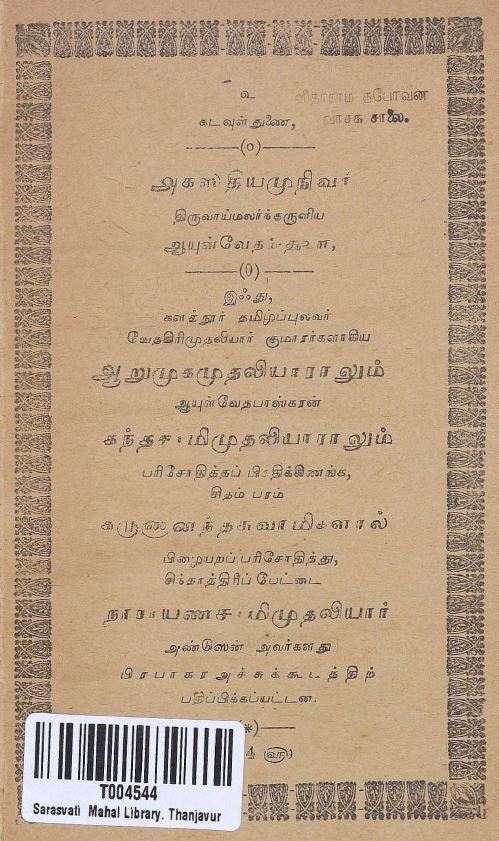 உ
ஸ்ரீதாராம தபோவன
வாசக சாலை.
கடவுள் துணை,
அகஸ்தியமுநிவர்
திருவாய்மலர்ந்தருளிய
ஆயுள்வேதம்
இஃது,
களத்தூர் தமிழ்ப்புலவர்
வேதகிரிமுதலியார் குமாரர்களாகிய
ஆறுமுகமுதலியாராலும்
ஆயுள்வேதபாஸ்கரன்
கந்தசாமிமுதலியாராலும்
பரிசோதித்தப் பிரதிக்கிணங்க,
சிதம் பரம்
பிழையறப் பரிசோதித்து,
சிந்தாத்திரிப் பேட்டை
நாராயணசாமிமுதலியார்
அண்டுஸன் அவர்களது
பிரபாகர அச்சுக்கூடத்திற்
பதிப்பிக்கப்பட்டன.
T004544
Sarasvati Mahal Library, Thanjavur